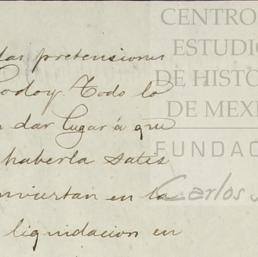 das pretensiones
Godoy Todo lo
dar lugar á que
haberla satis
nviertan en la
liquidacion en
CENTRO
ESTUDIO
DE HISTO
DE MEX
FUNDAC
Carlos